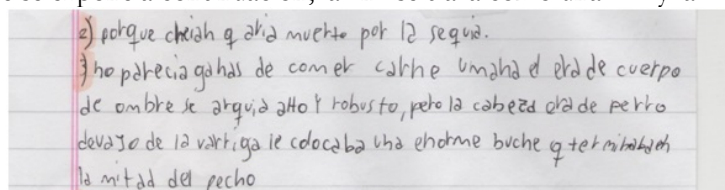 2) porque creian q avia muerto por la sequia.
3) no parecia ganas de comer carne umana el era de cuerpo
de ombre se arquia alto y robusto, pero la cabeza era de perro
devajo de la varriga le colocaba una enorme buche q terminaba en
la mitad del pecho